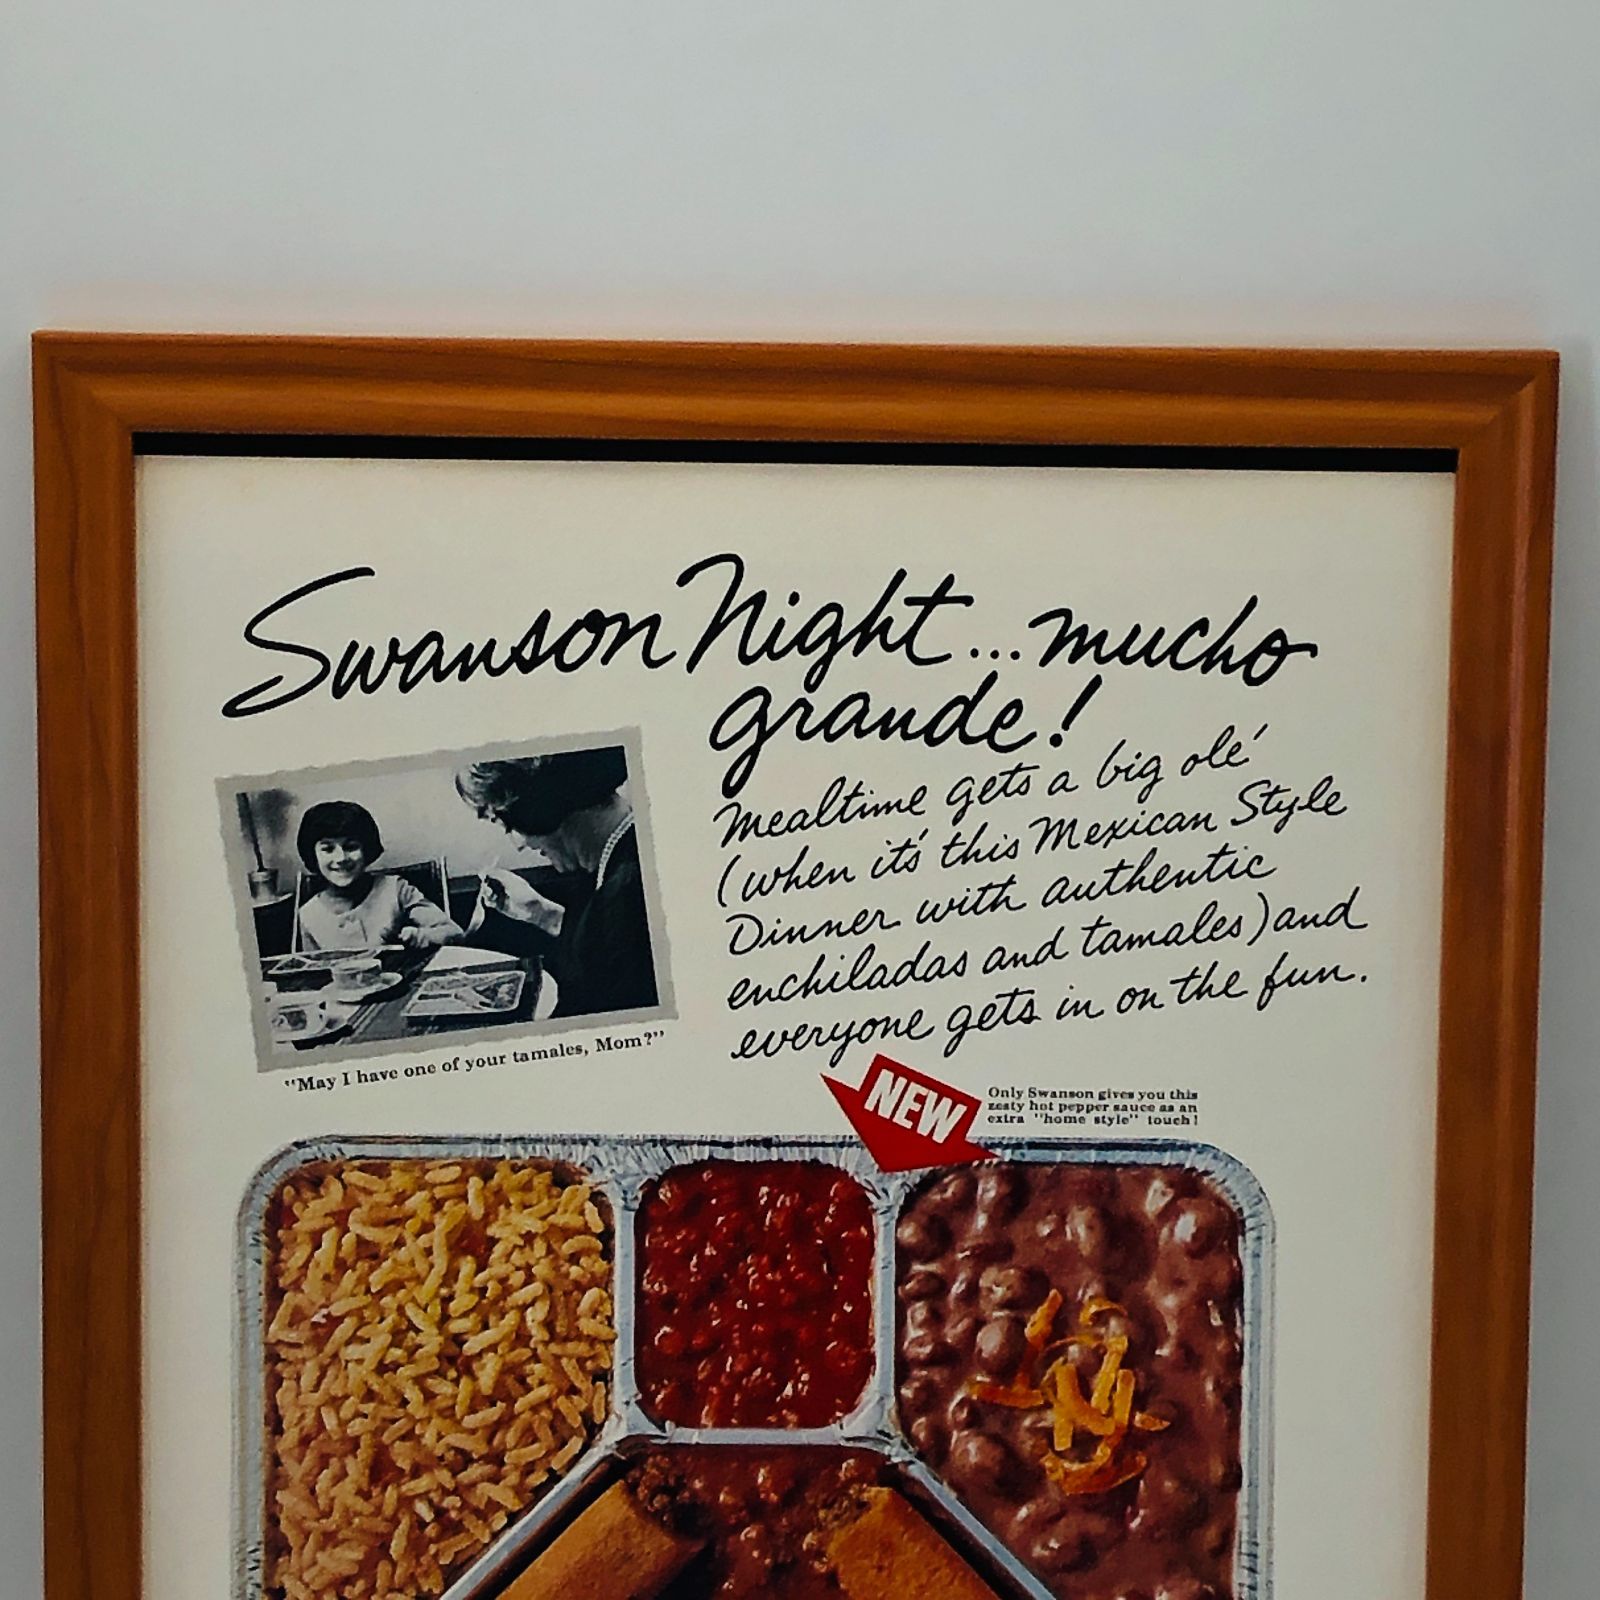 Swanson Night...mucho
grande!
Mealtime gets a big olé
(when it's this Mexican Style
Dinner with authentic
enchiladas and tamales) and
everyone gets in on the fun.
"May I have one of your tamales, Mom?"
NEW
Only Swanson gives you this
zesty hot pepper sauce as an
extra "home style" touch!